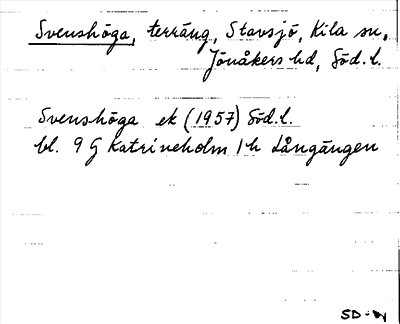 Svenshöga, terräng, Stavsjö, Kila sn,
Jönåkers hd, Söd. l.
Svenshöga ek (1957) Söd. l.
bl. 9 G Katrineholm 1h Långängen
SD-N